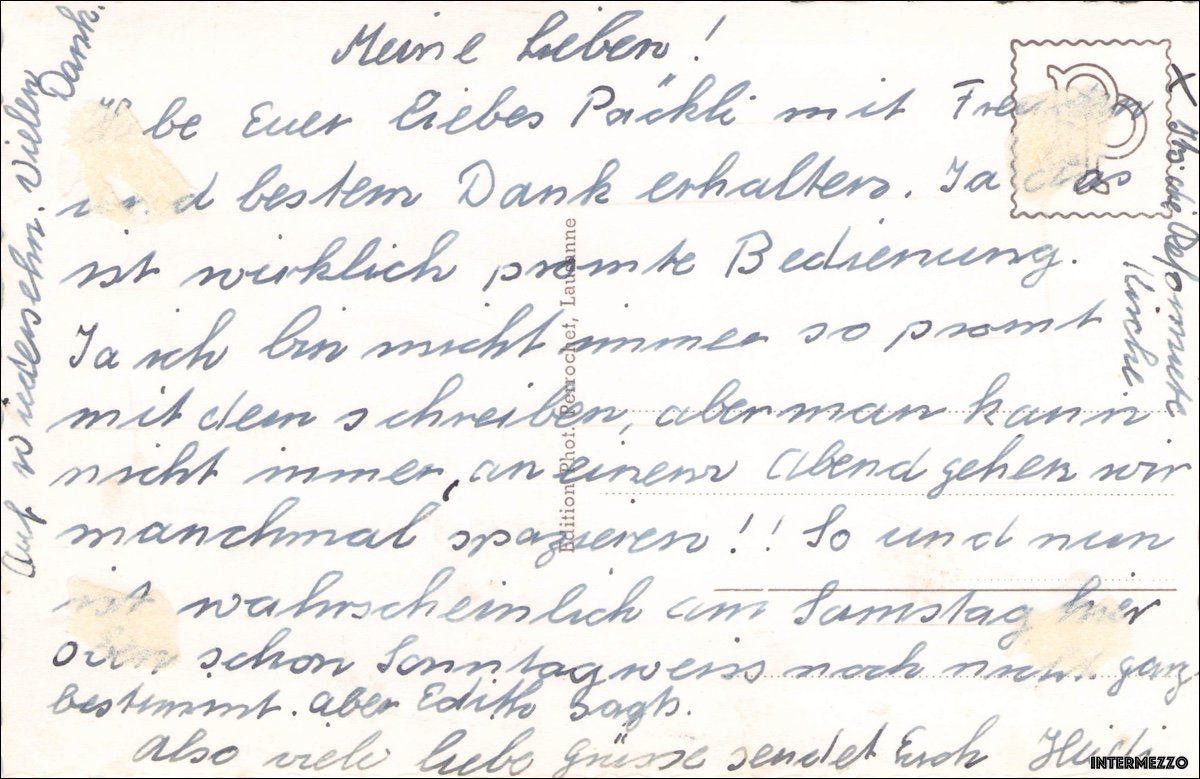 Meine Lieben!
Habe Euer liebes Päckli mit Freuden
und bestem Dank erhalten. Ja das
ist wirklich promte Bedienung.
Ja ich bin nicht immer so promt
mit dem schreiben, aber man kann
nicht immer, an einem Abend gehen wir
manchmal spazieren!! So und nun
ist wahrscheinlich am Samstag hier
oder schon Sonntag weiss noch nicht ganz
bestimmt. aber Edith sagts.
Also viele liebe grüsse sendet Euch Heidi
Auf wiedersehn. Vielen
Dank.
X die Reformierte
Kirche
Edition Phot. Perrochet, Lausanne
INTERMEZZO